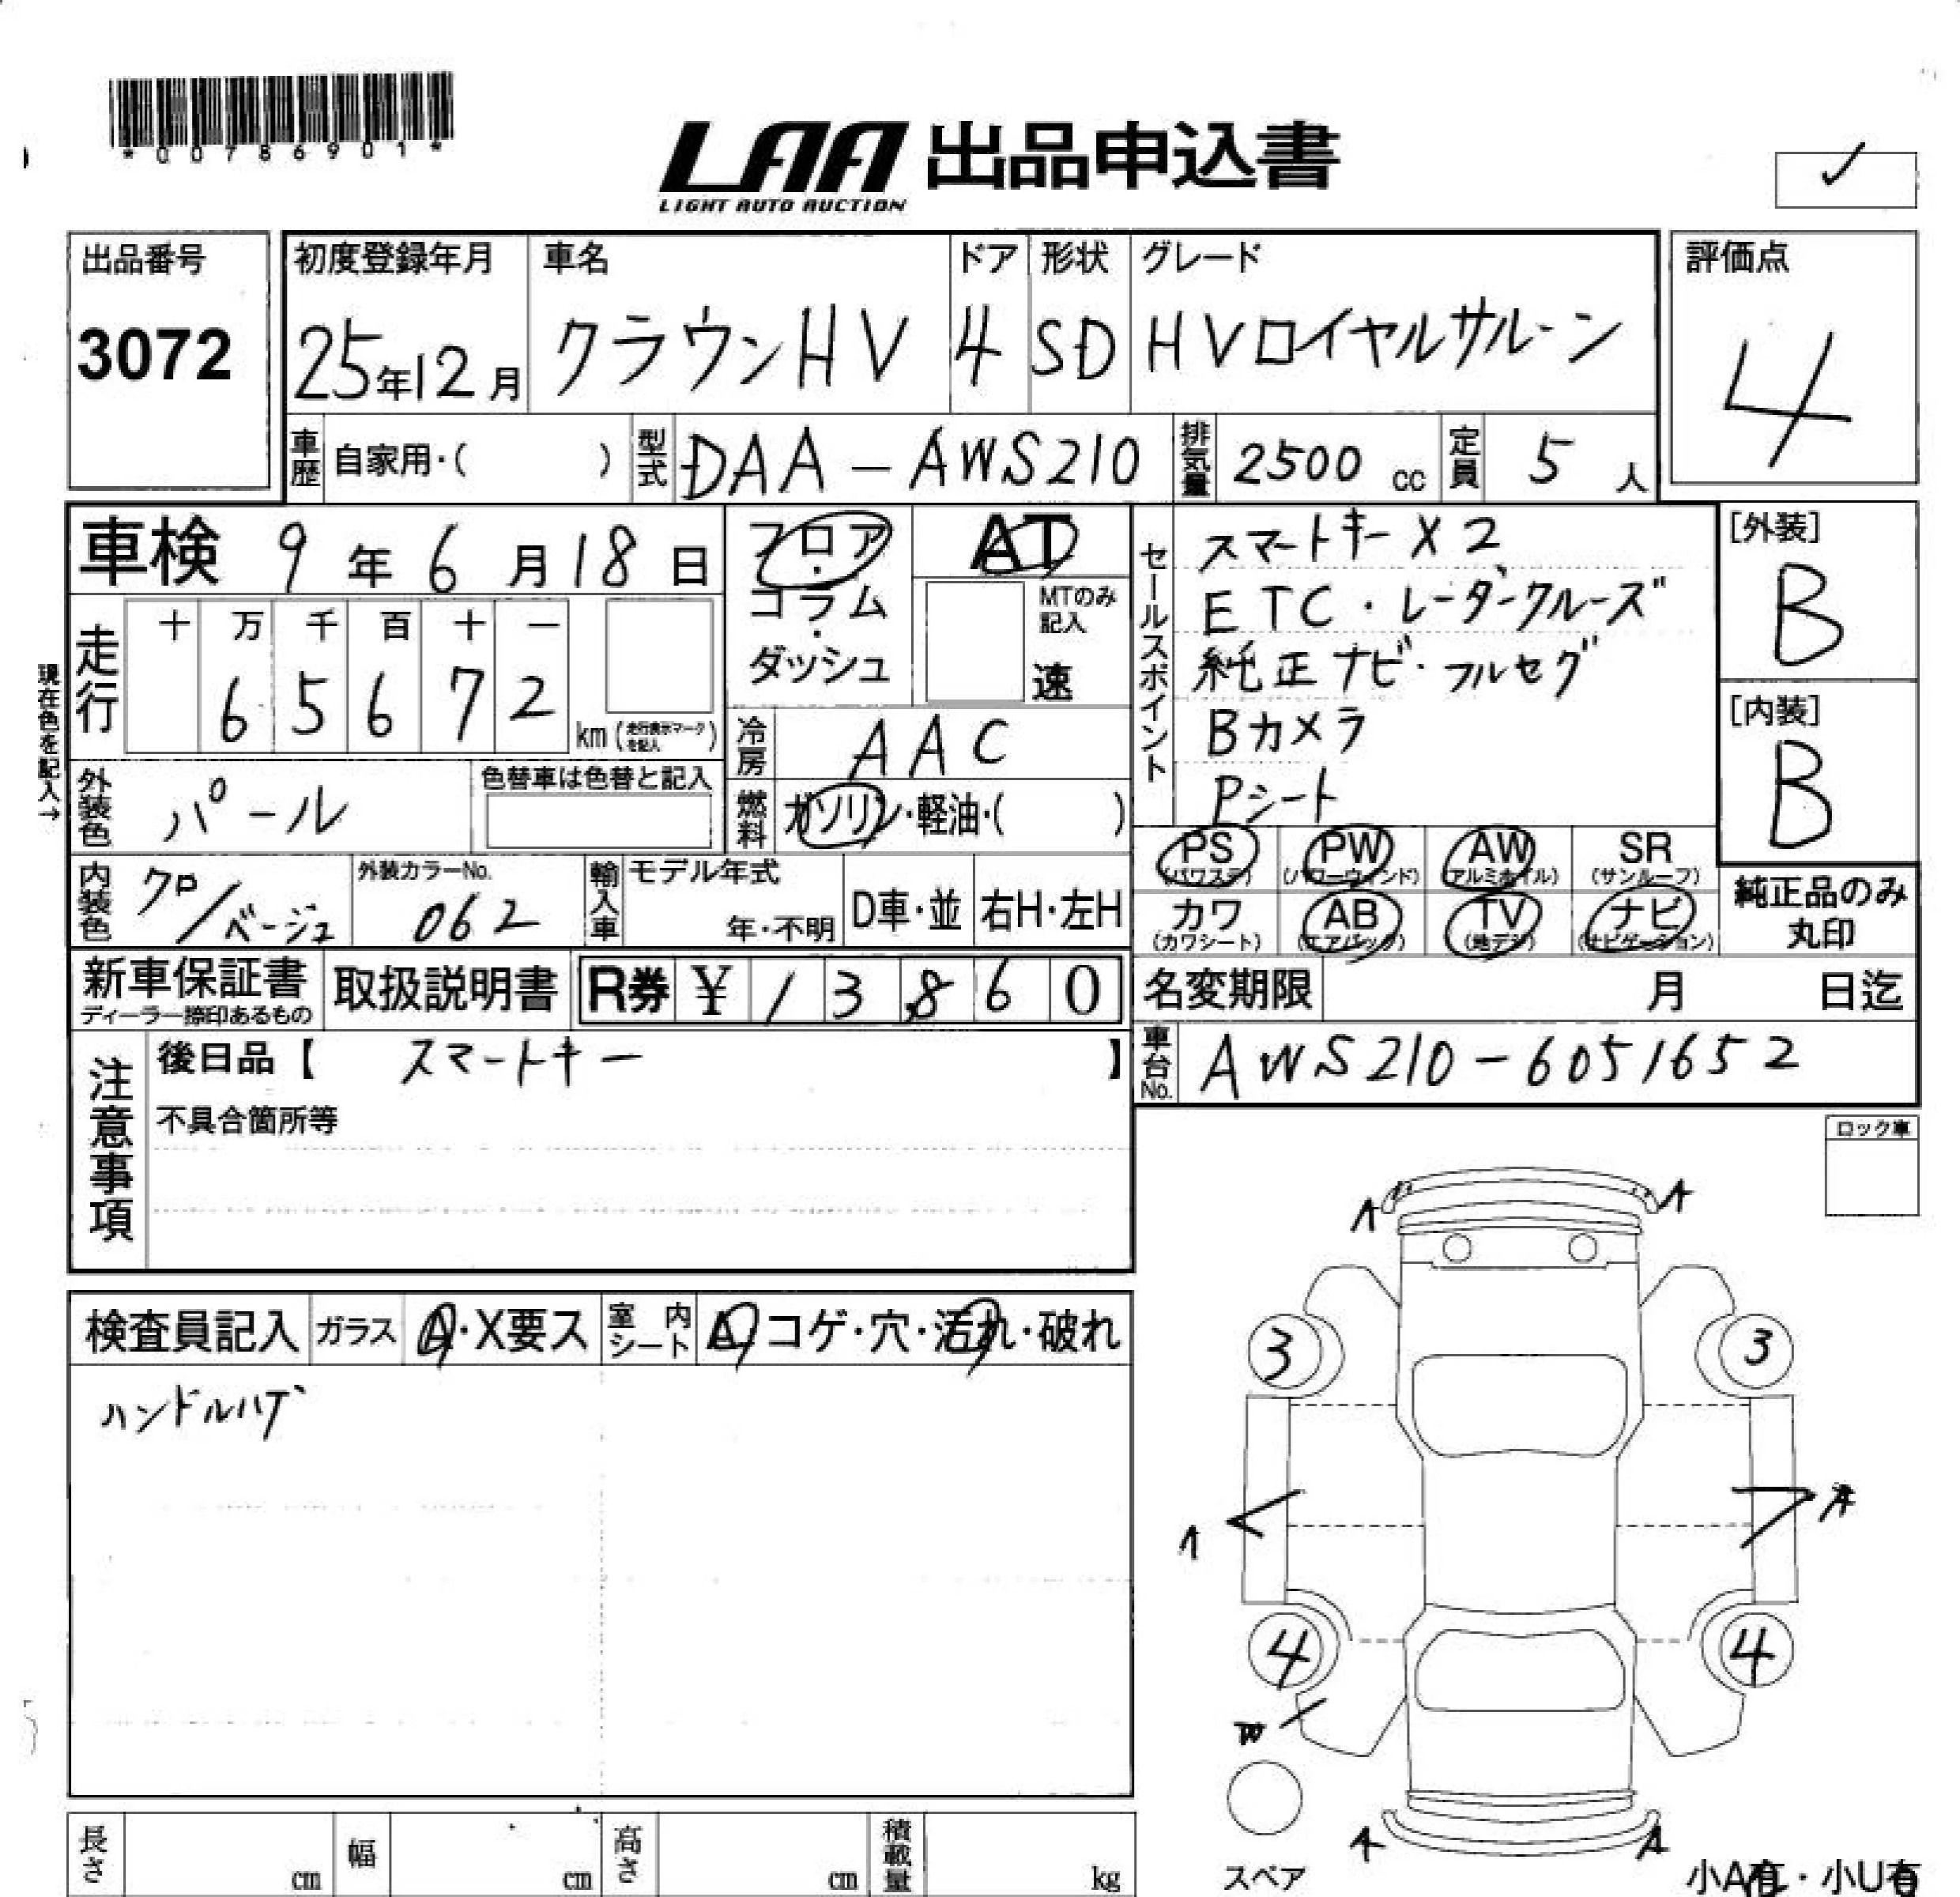 *00786901*
LAA 出品申込書
LIGHT AUTO AUCTION
出品番号
3072
初度登録年月
25年12月
車名
クラウンHV
ドア
4
形状
SD
グレード
HVロイヤルサルーン
評価点
4
車歴 自家用・( )
型式 DAA-AWS210
排気量 2500 cc
定員 5 人
車検 9年6月18日
フロア・コラム・ダッシュ
AT
MTのみ記入
速
セールスポイント
スマートキーX2
ETC・レーダークルーズ
純正ナビ・フルセグ
Bカメラ
Pシート
[外装]
B
[内装]
B
現在色を記入→
走行
十 万 千 百 十 一
6 5 6 7 2
km(走行表示マークを記入)
冷房 AAC
燃料 ガソリン・軽油・( )
外装色 パール
色替車は色替と記入
内装色 クロ/ベージュ
外装カラーNo.
062
輸入車
モデル年式
年・不明
D車・並
右H・左H
PS (パワステ)
PW (パワーウィンド)
AW (アルミホイル)
SR (サンルーフ)
カワ (カワシート)
AB (エアバック)
TV (地デジ)
ナビ (ナビゲーション)
純正品のみ
丸印
新車保証書
ディーラー捺印あるもの
取扱説明書
R券 ¥13,860
名変期限 月 日迄
車台No. AWS210-6051652
注意事項
後日品【 スマートキー 】
不具合箇所等
ロック車
検査員記入
ガラス A・X要ス
室内シート A コゲ・穴・汚れ・破れ
ハンドルハゲ
A A
3 3
A A
4 4
W
A A
スペア
小A有・小U有
長さ cm
幅 cm
高さ cm
積載量 kg